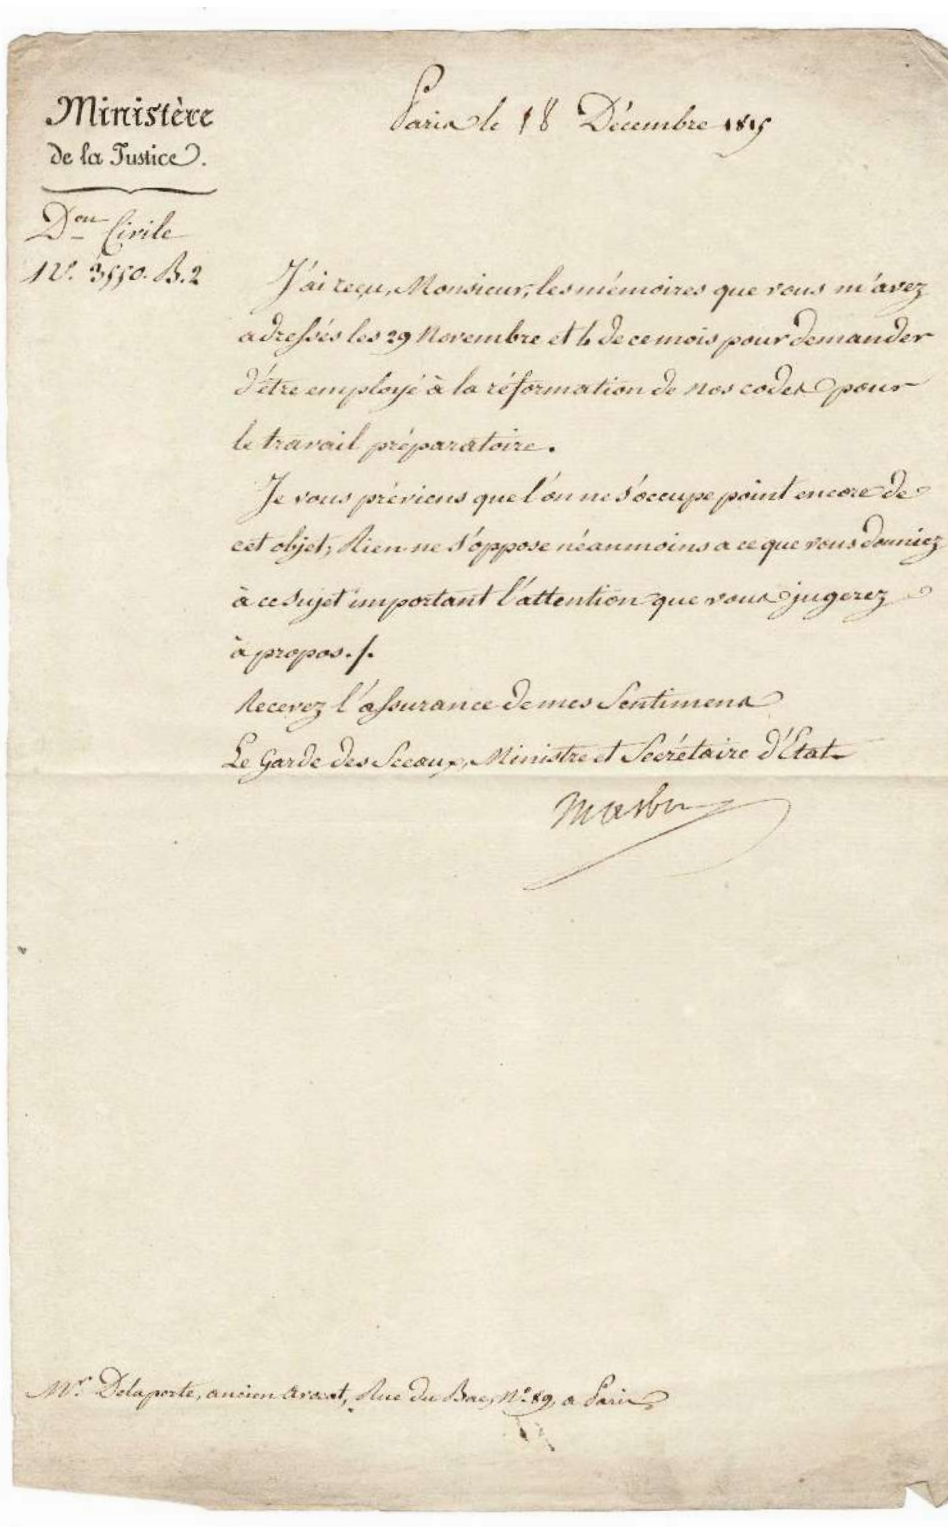 Ministère
de la Justice.
Paris le 18 Décembre 1815
Don Civile
N°. 3550. B.2
J'ai reçu, Monsieur, les mémoires que vous m'avez
adressés les 29 Novembre et 4 de ce mois pour demander
d'être employé à la réformation de nos codes pour
le travail préparatoire.
Je vous préviens que l'on ne s'occupe point encore de
cet objet; Rien ne s'oppose néanmoins a ce que vous donniez
à ce sujet important l'attention que vous jugerez
à propos./.
Recevez l'assurance de mes Sentimens
Le Garde des Sceaux, Ministre et Secrétaire d'Etat
Mr. Delaporte, ancien avocat, Rue du Bac, N° 89, a Paris